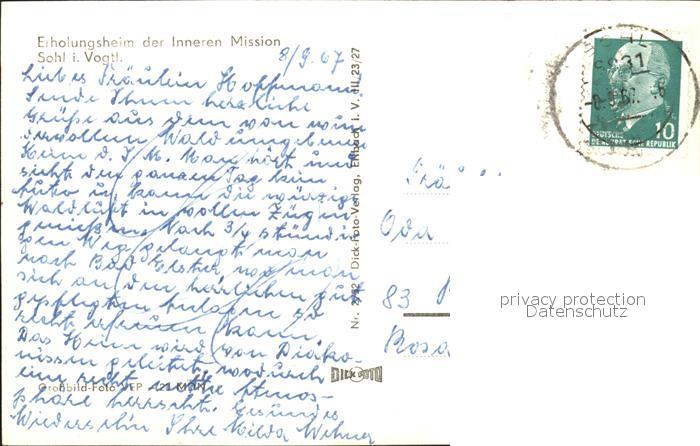 Erholungsheim der Inneren Mission
Sohl i. Vogtl.
8/9. 67
Liebes Fräulein Hoffmann
Sende Ihnen herzliche
Grüße aus dem von wun
dervollen Wald umgebenen
Heim d. I. M. Man hört und
sieht den ganzen Tag kein
Auto u. kann die würzige
Waldluft in vollen Zügen
genießen. Nach 3/4 stündi
gem Weg gelangt man
nach Bad Elster, wo man
sich an den herrlichen gut
gepflegten Anlagen so
recht erfreuen kann.
Das Heim wird von Diako-
nissen geleitet, wodurch
eine recht Atmos-
phäre herrscht. Gesundes
Wiedersehn Ihre Hilda Wehner
Großbild-Foto VEP
Nr. Dick-Foto-Verlag, Erlbach i. V. III 23/27
DICK FOTO
9931
10
DEUTSCHE
DEMOKRATISCHE REPUBLIK
Frä
Oda
83
Rosa
privacy protection
Datenschutz